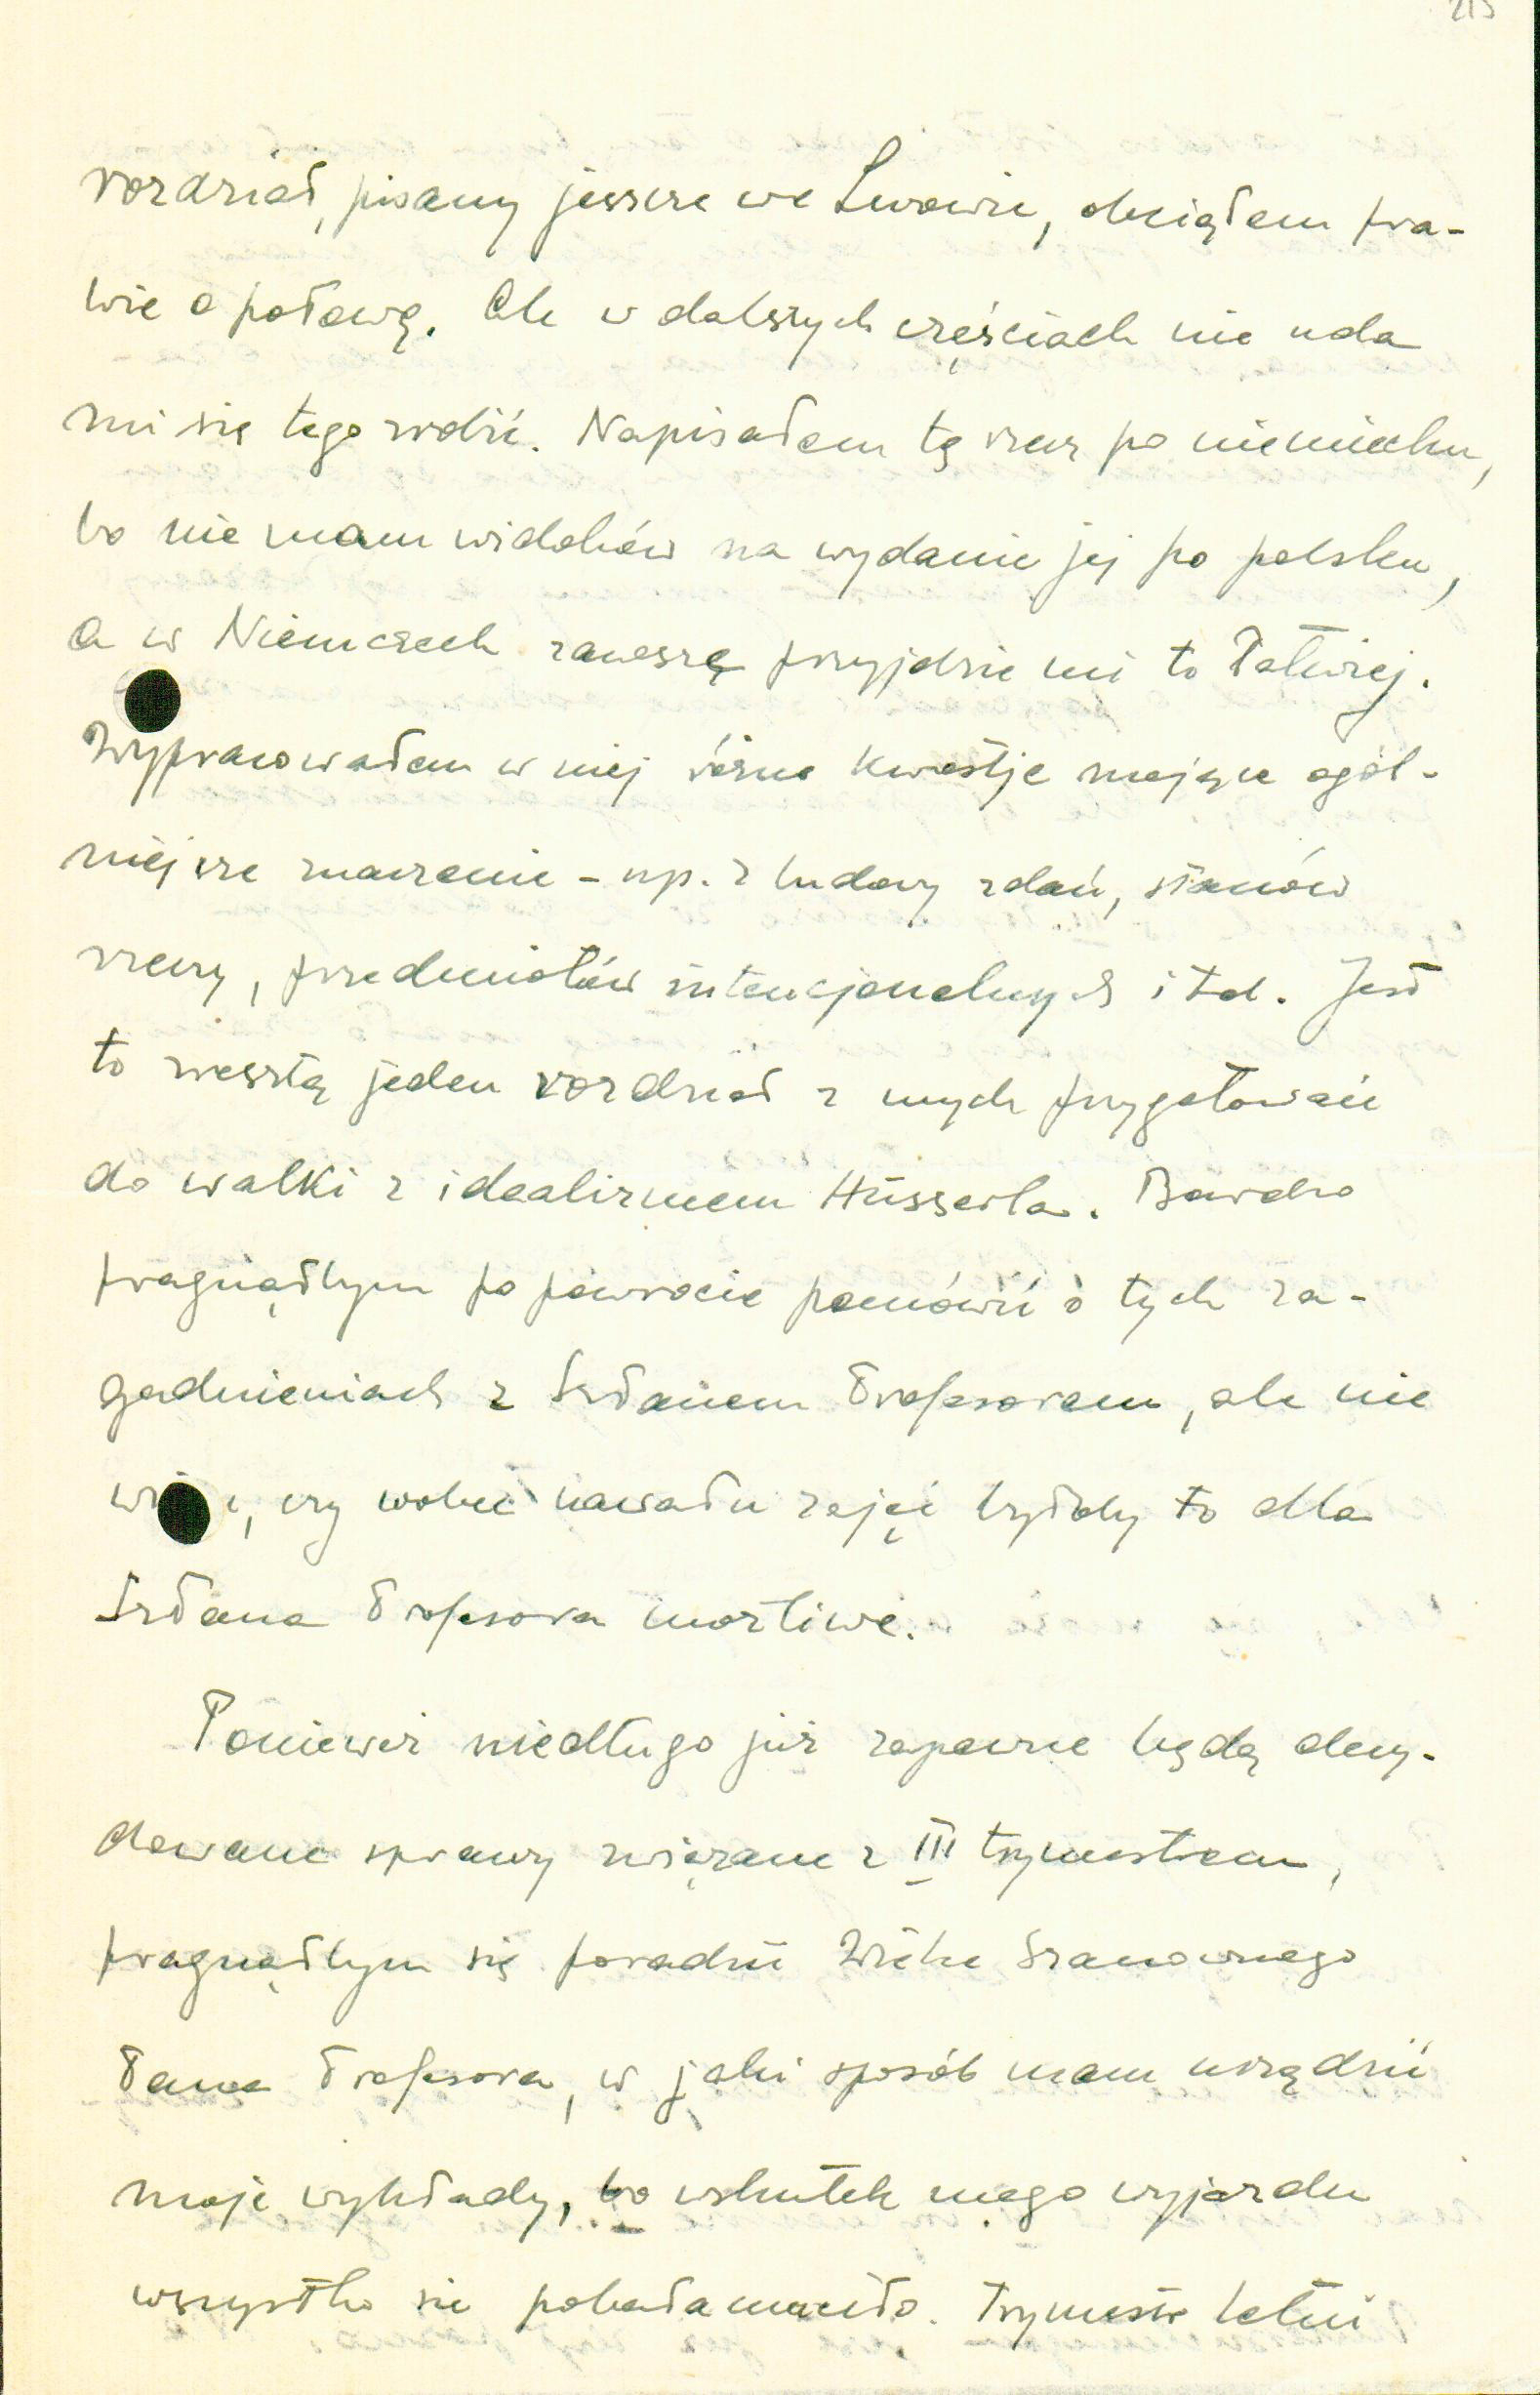 215
rozdział, pisany jeszcze we Lwowie, obciąłem pra-
wie o połowę. Ale w dalszych częściach nie uda
mi się tego zrobić. Napisałem tę rzecz po niemiecku,
bo nie mam widoków na wydanie jej po polsku,
a w Niemczech zawszę przyjdzie mi to łatwiej.
Wypracowałem w niej różne kwestje mające ogól-
niejsze znaczenie - np. z budowy zdań, stanów
rzeczy, przedmiotów intencjonalnych i t.d. Jest
to zresztą jeden rozdział z mych przygotowań
do walki z idealizmem Husserla. Bardzo
pragnąłbym po powrocie pomówić o tych za-
gadnieniach z Sz Panem Profesorem, ale nie
wiem, czy wobec nawału zajęć byłoby to dla
Sz Pana Profesora możliwe.
Ponieważ niedługo już zapewne będą decy-
dowane sprawy związane z III trymestrem,
pragnąłbym się poradzić Wielce Szanownego
Pana Profesora, w jaki sposób mam urządzić
moje wykłady, bo wskutek mego wyjazdu
wszystko się pobałamuciło. Trymestr letni